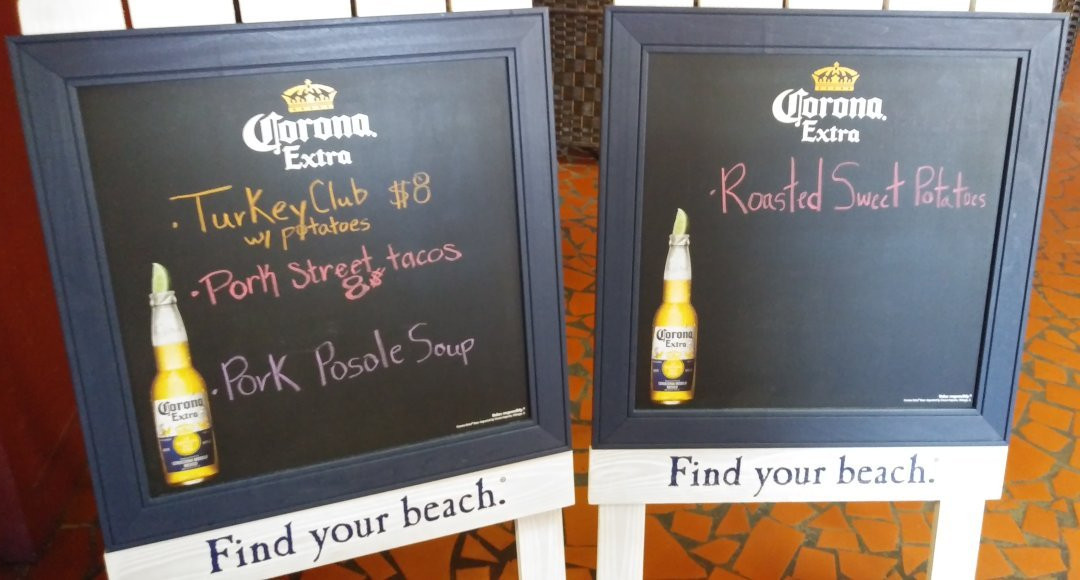 Corona
Extra
· Turkey Club $8
w/ potatoes
· Pork Street tacos
8$
· Pork Posole Soup
Corona
Extra
Find your beach.
Corona
Extra
· Roasted Sweet Potatoes
Corona
Extra
Find your beach.